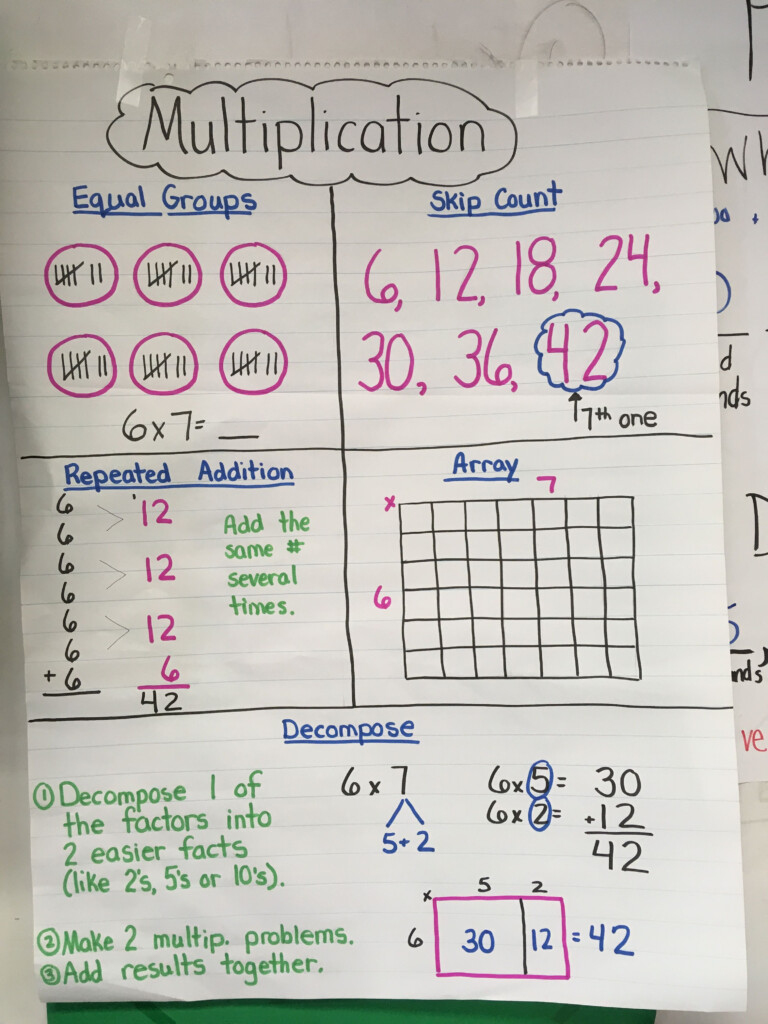 Multiplication
Equal Groups
6x7= __
Skip Count
6, 12, 18, 24,
30, 36, 42
7th one
Repeated Addition
6
6
6
6
6
6
+6
12
12
12
6
42
Add the
same #
several
times.
Array
x 7
6
Decompose
① Decompose 1 of
the factors into
2 easier facts
(like 2's, 5's or 10's).
② Make 2 multip. problems.
③ Add results together.
6 x 7
5+2
6x5= 30
6x2= +12
42
x 5 2
6 30 12 = 42
nds
nds
ve